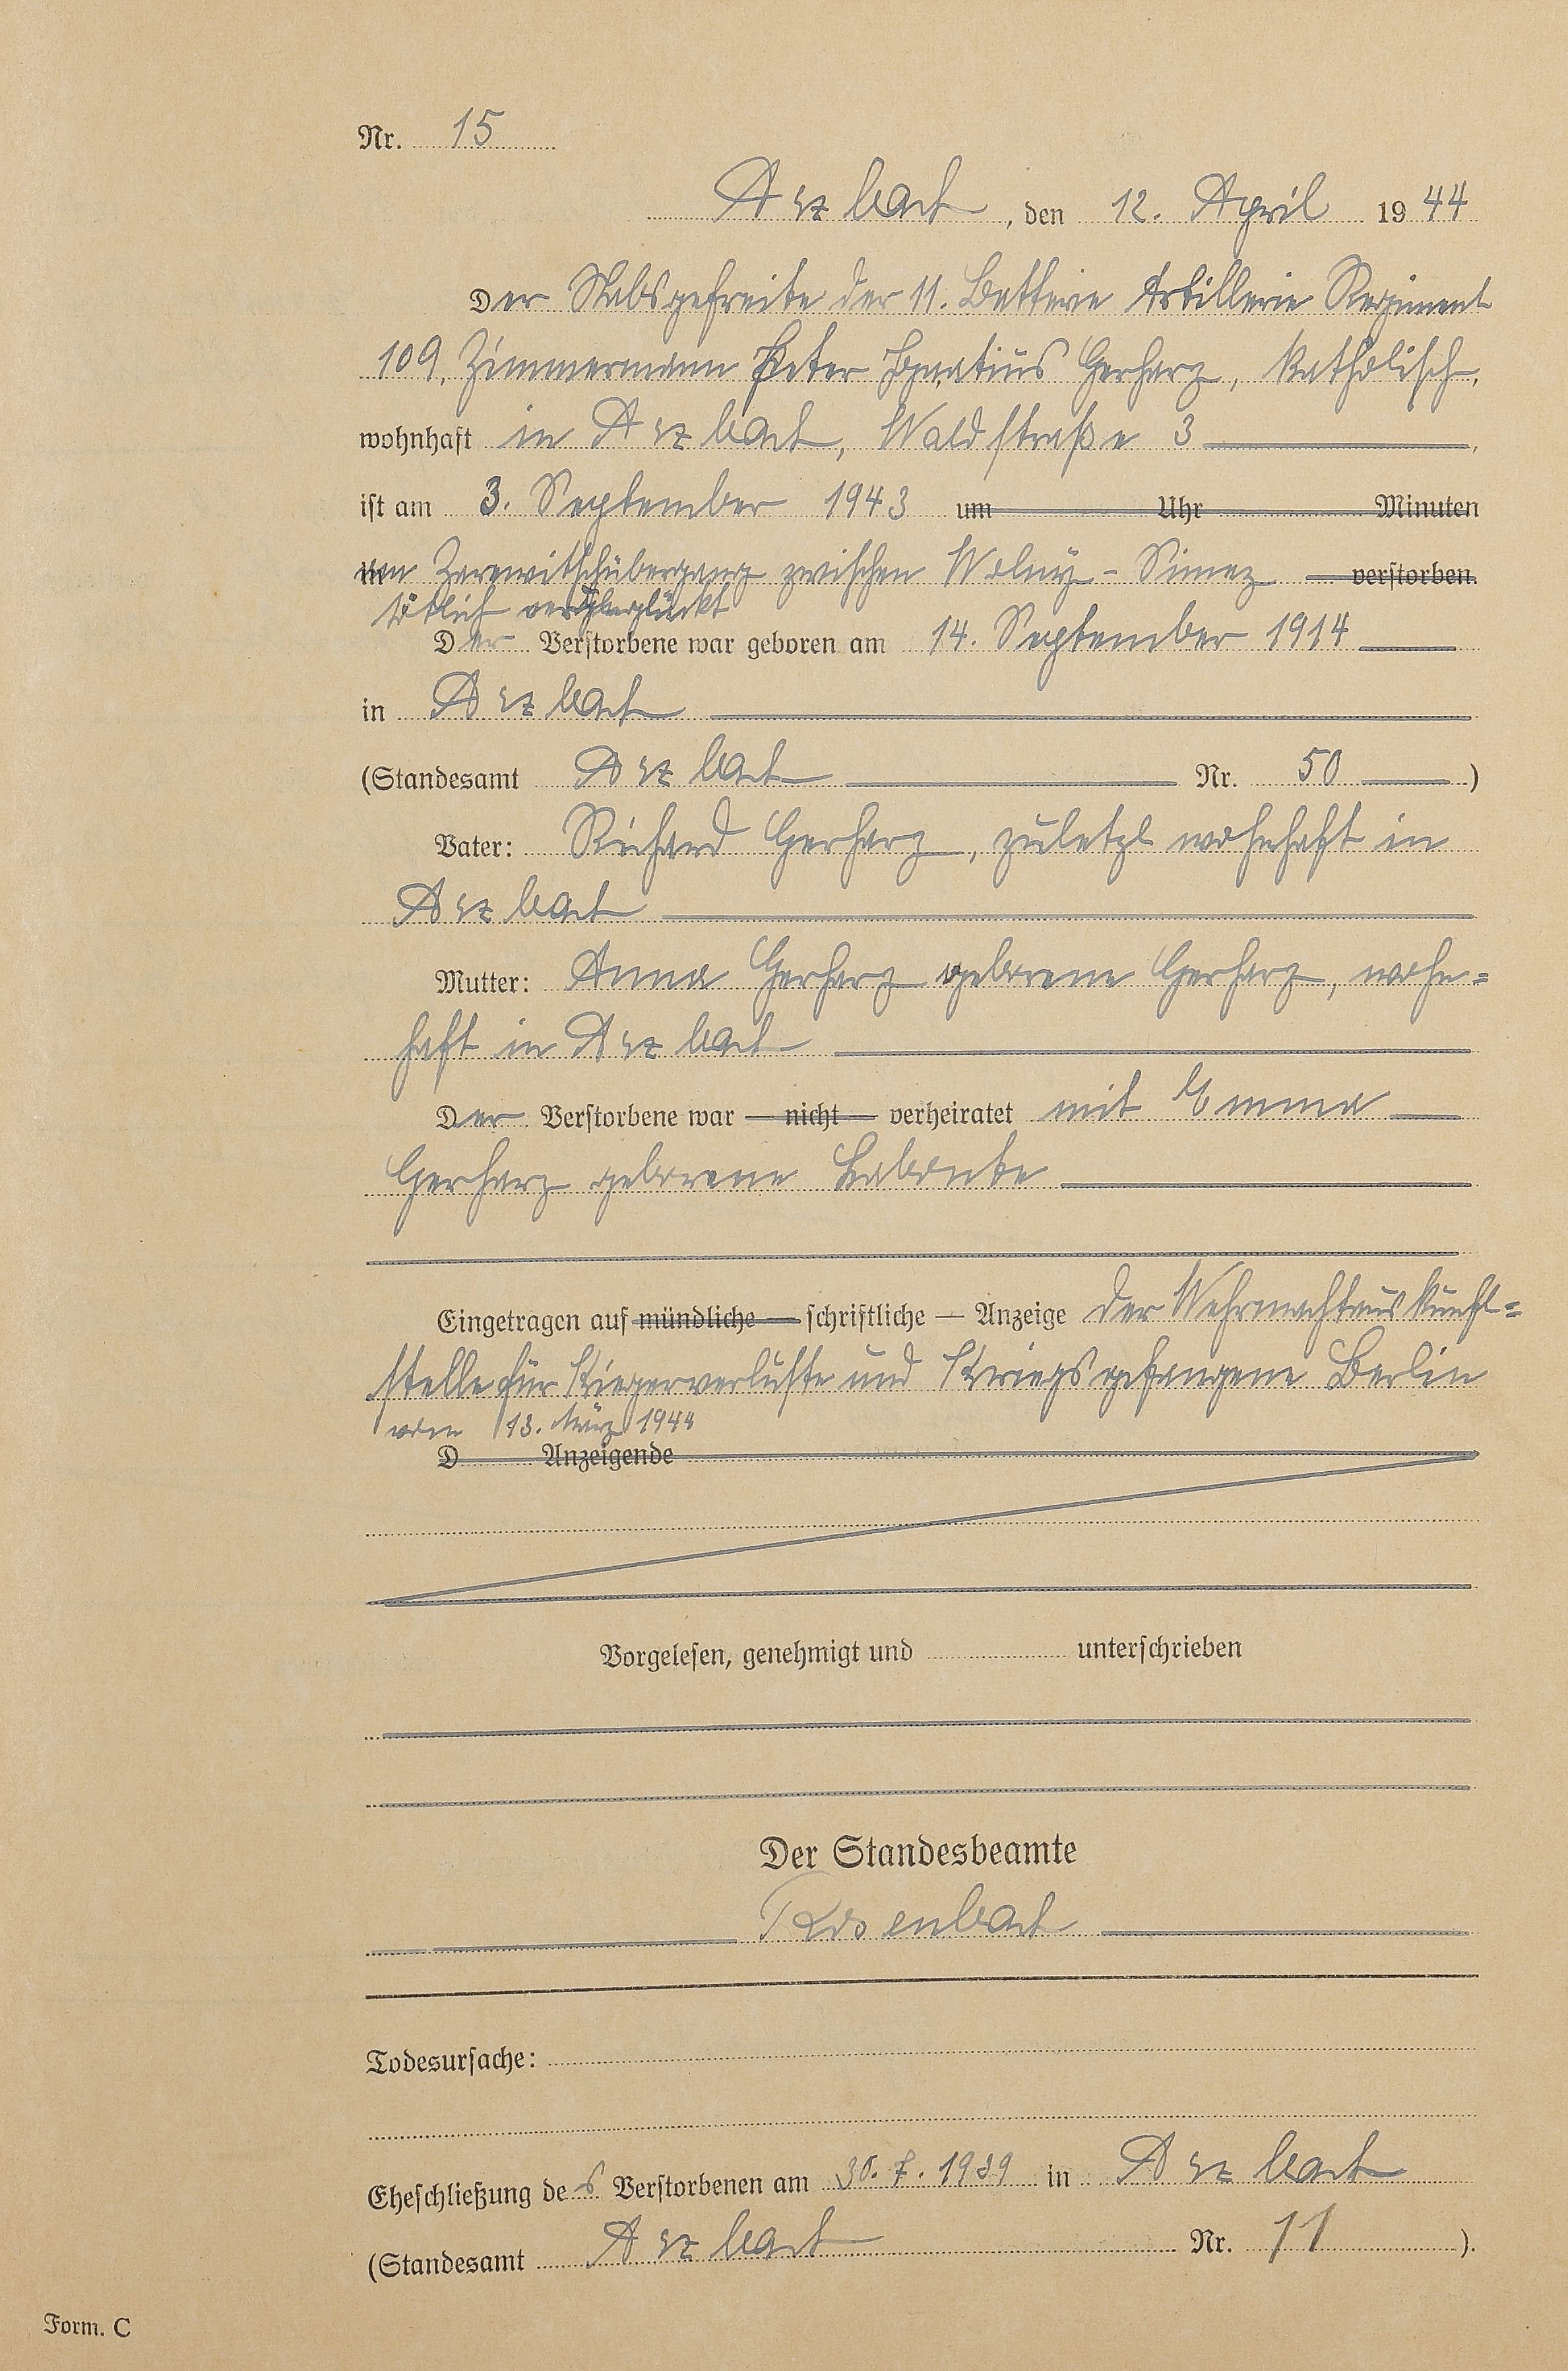 Nr. 15
Arzbach, den 12. April 1944
Der Stabsgefreite der 11. Batterie Artillerie Regiment
109, Zimmermann Peter Ignatius Gerharz, katholisch,
wohnhaft in Arzbach, Waldstraße 3
ist am 3. September 1943 um Uhr Minuten
Zarewitschübergang zwischen Wolny - Simez verstorben.
tötlich verunglückt
Der Verstorbene war geboren am 14. September 1914
in Arzbach
(Standesamt Arzbach Nr. 50)
Vater: Richard Gerharz, zuletzt wohnhaft in
Arzbach
Mutter: Anna Gerharz geborene Gerharz, wohn=
haft in Arzbach
Der Verstorbene war — nicht — verheiratet mit Emma
Gerharz geborene Labonte
Eingetragen auf mündliche — schriftliche — Anzeige der Wehrmachtauskunft=
stelle für Kriegerverluste und Kriegsgefangene Berlin
vom 13. März 1944
D Anzeigende
Vorgelesen, genehmigt und unterschrieben
Der Standesbeamte
Rosenbach
Todesursache:
Eheschließung des Verstorbenen am 30. 7. 1939 in Arzbach
(Standesamt Arzbach Nr. 11).
Form. C